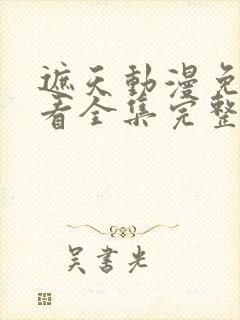 遮天動漫免
看全集完整
吴書光